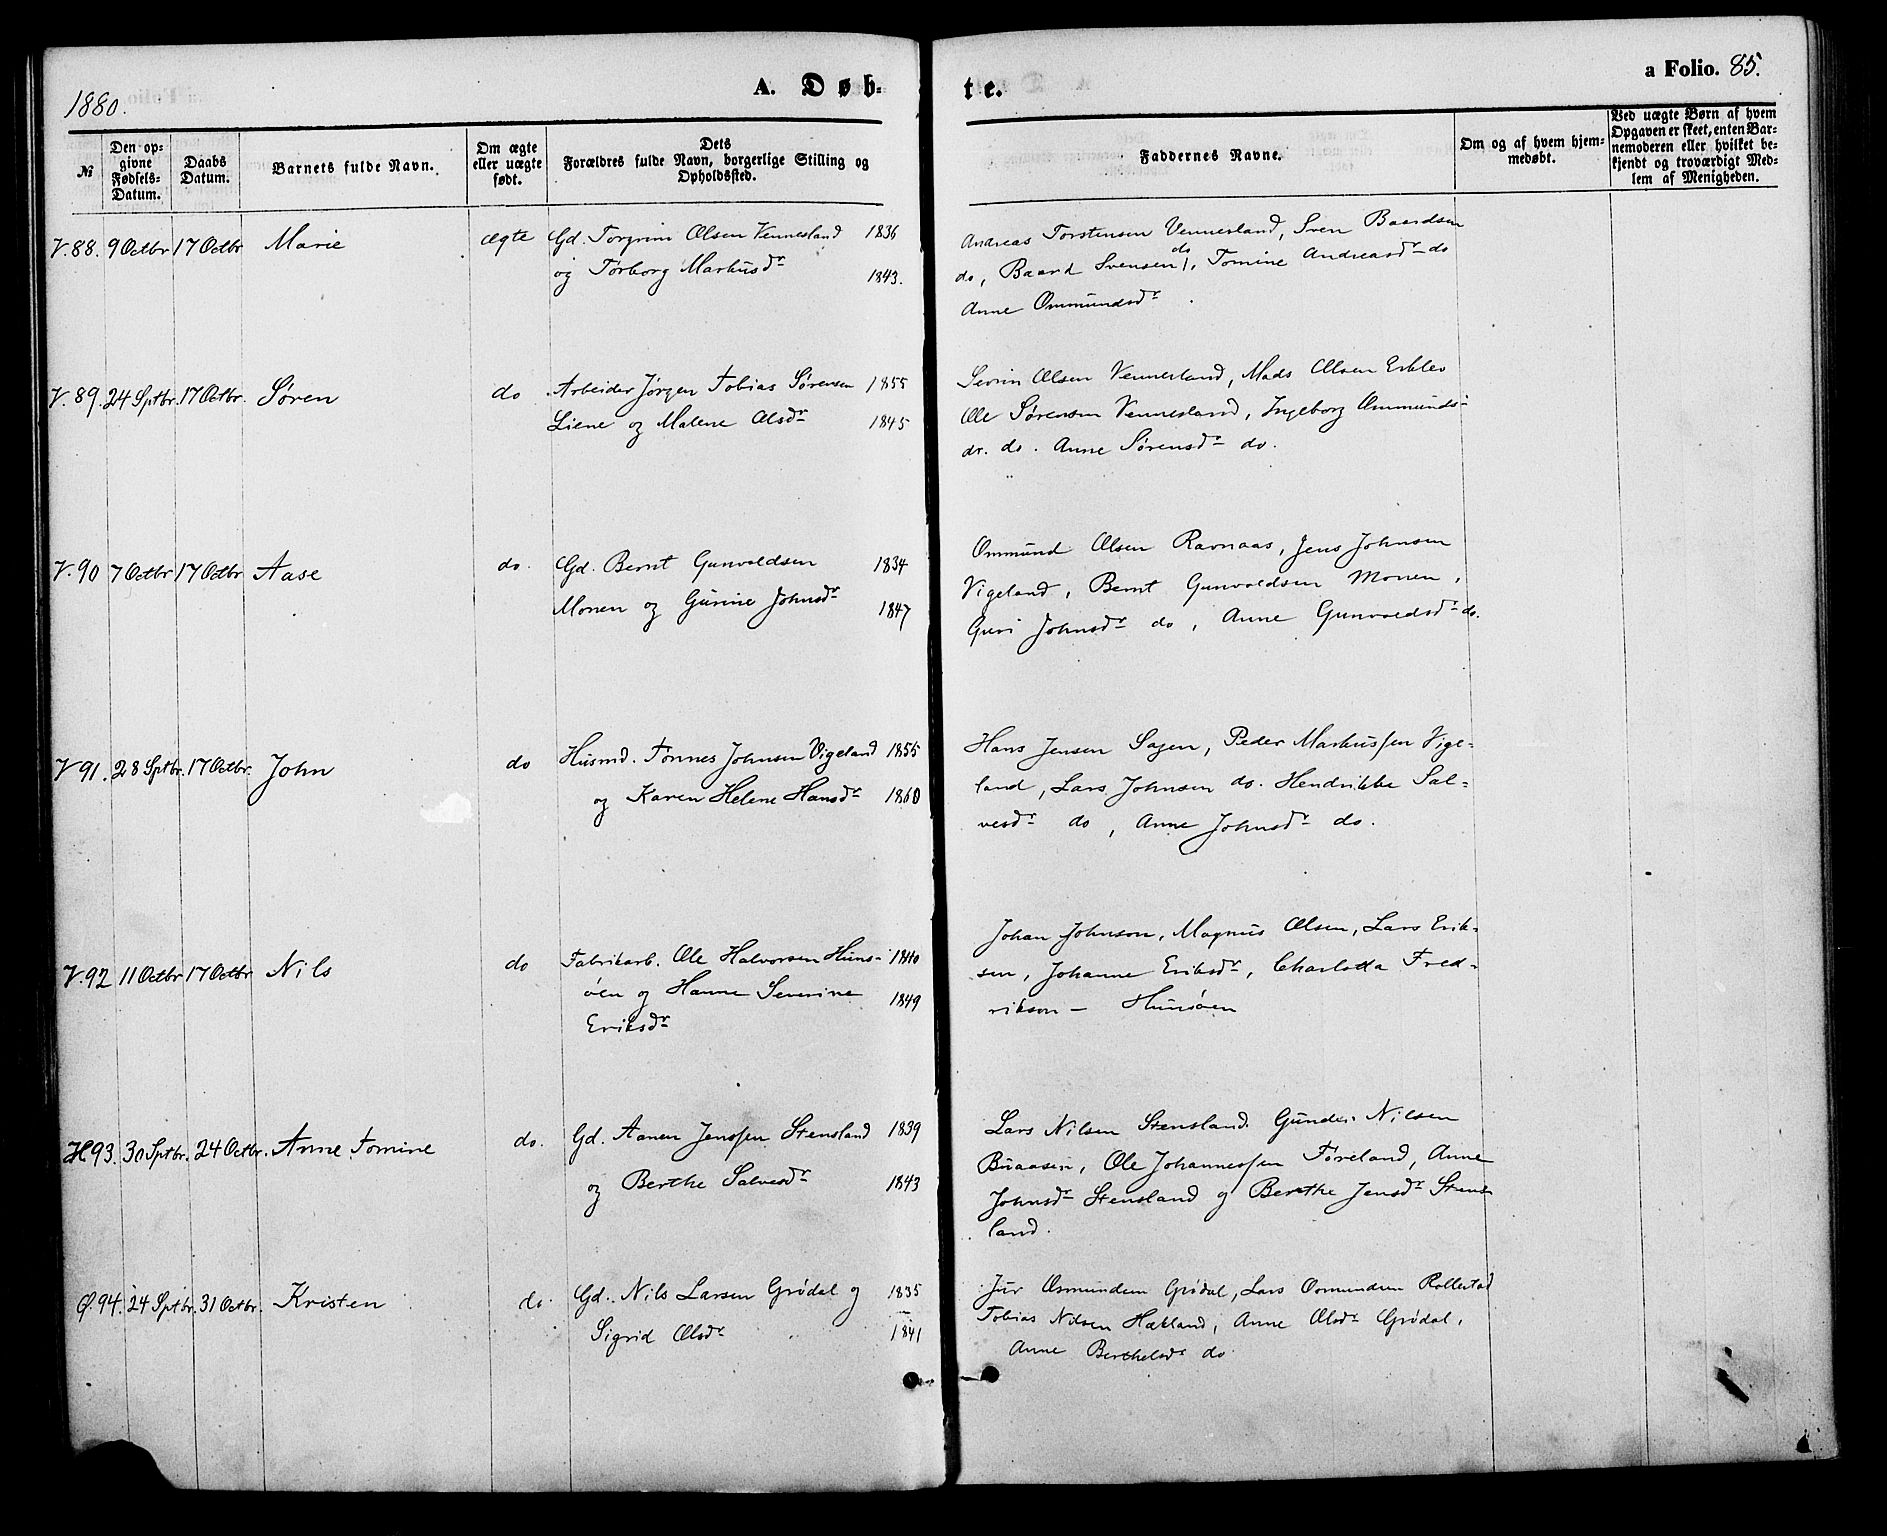 1880.
A. Døb-
te.
a Folio. 85.
№
Den op-
givne
Fødsels-
Datum.
Daabs
Datum.
Barnets fulde Navn.
Om ægte
eller uægte
født.
Dets
Forældres fulde Navn, borgerlige Stilling og
Opholdssted.
Faddernes Navne.
Om og af hvem hjem-
medøbt.
Ved uægte Børn af hvem
Opgaven er skeet, enten Bar-
nemoderen eller hvilket be-
kjendt og troværdigt Med-
lem af Menigheden.
V. 88. 9 Octbr 17 Octbr Marie ægte Gd. Torgrim Olsen Vennesland 1836
og Torborg Markusdr 1843.
Andreas Torstensen Vennesland, Sven Baardsen
do, Baard Svensen do, Tomine Andreasdr do
Anne Ommundsdr
V. 89. 24 Sptbr. 17 Octbr. Søren do Arbeider Jørgen Tobias Sørensen 1855
Liene og Malene Olsdr 1845
Severin Olsen Vennesland, Mads Olsen
Ole Sørensen Vennesland, Ingeborg Ommunds-
dr. do. Anne Sørensdr do.
V. 90 7 Octbr 17 Octbr Aase do. Gd. Bernt Gunvaldsen 1834
Monen og Gurine Johnsdr 1847
Ommund Olsen Ravnaas, Jens Johnsen
Vigeland, Bernt Gunvaldsen Monen,
Guri Johnsdr do, Anne Gunvaldsdr do.
V 91. 28 Sptbr. 17 Octbr. John do Husmd. Tønnes Johnsen Vigeland 1855
og Karen Helene Hansdr 1860
Hans Jensen Sagen, Peder Markussen Vige-
land, Lars Johnsen do. Hendrikke Sal-
vesdr do, Anne Johnsdr do.
V. 92 11 Octbr 17 Octbr Nils do Fabrikarb. Ole Halvorsen Huns- 1840
øen og Hanne Severine 1849
Eriksdr
Johan Johnson, Magnus Olsen, Lars Erik-
sen, Johanne Eriksdr, Charlotta Fred-
rikson — Hunsøen
H. 93. 30 Sptbr. 24 Octbr. Anne Tomine do. Gd. Aanen Jenssen Stensland 1839
og Berthe Salvesdr 1843
Lars Nilsen Stensland. Gunder Nilsen
Buaasen, Ole Johannessen Føreland, Anne
Johnsdr Stensland og Berthe Jensdr Stens-
land.
Ø. 94. 24 Sptbr. 31 Octbr. Kristen do. Gd. Nils Larsen Grødal og 1835
Sigrid Olsdr 1841
Jur Osmundsen Grødal, Lars Osmundsen Rollestad
Tobias Nilsen Hækland, Anne Olsdr Grødal,
Anne Berthelsdr do